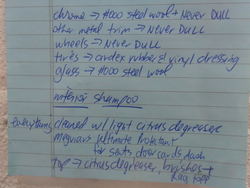 chrome → #000 steel wool + Never Dull
other metal trim → Never Dull
wheels → Never Dull
tires → cardex rubber & vinyl dressing
glass → #000 steel wool
interior shampoo
everything cleaned w/ light citrus degreaser
meguiars ultimate protectant
for seats door cards dash
top → citrus degreaser, brushes +